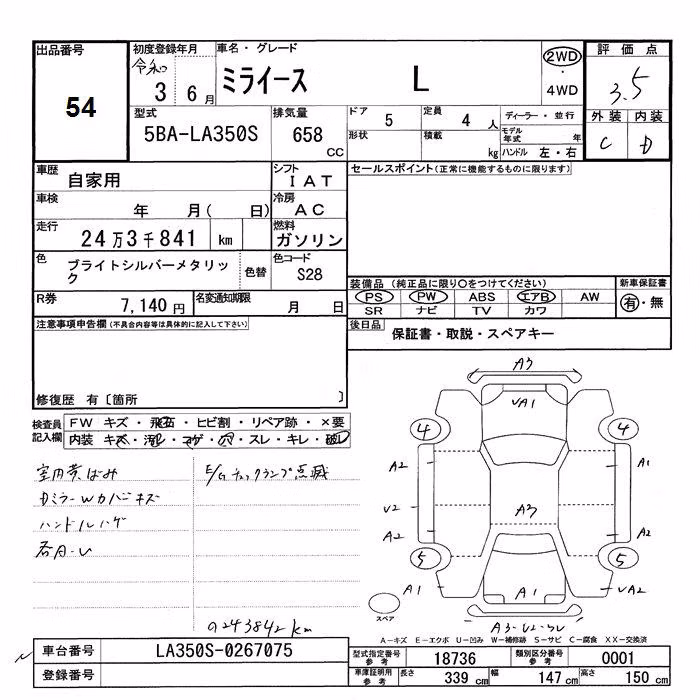 出品番号
54
初度登録年月
令和
3 6月
車名・グレード
ミライース L
2WD
・
4WD
評価点
3.5
外装 内装
C D
型式
5BA-LA350S
排気量
658
CC
ドア 5
定員 4 人
形状
積載 kg
ディーラー・並行
モデル年式 年
ハンドル 左・右
車歴
自家用
シフト
IAT
セールスポイント(正常に機能するものに限ります)
車検
年 月( 日)
冷房
AC
走行
24万3千841 km
燃料
ガソリン
色
ブライトシルバーメタリック
色替
色コード
S28
装備品(純正品に限り○をつけてください)
PS PW ABS エアB AW
SR ナビ TV カワ
新車保証書
有・無
R券
7,140 円
名変通知期限
月 日
後日品
保証書・取説・スペアキー
注意事項申告欄(不具合内容等は具体的に記入して下さい)
修復歴 有〔箇所 〕
検査員記入欄
FW キズ・飛石・ヒビ割・リペア跡・×要
内装 キズ・汚レ・コゲ・穴・スレ・キレ・破レ
E/Gチェックランプ点滅
DミラーWカバーキズ
ハンドルハゲ
の243842km
A3
VA1
4 4
A2 A1
V2 A3
A2 A2
5 5
A1 A1 VA2
スペア
A-キズ E-エクボ U-凹み W-補修跡 S-サビ C-腐食 XX-交換済
車台番号
LA350S-0267075
登録番号
型式指定番号 参考
18736
類別区分番号 参考
0001
車庫証明用 参考
長さ 339 cm
幅 147 cm
高さ 150 cm